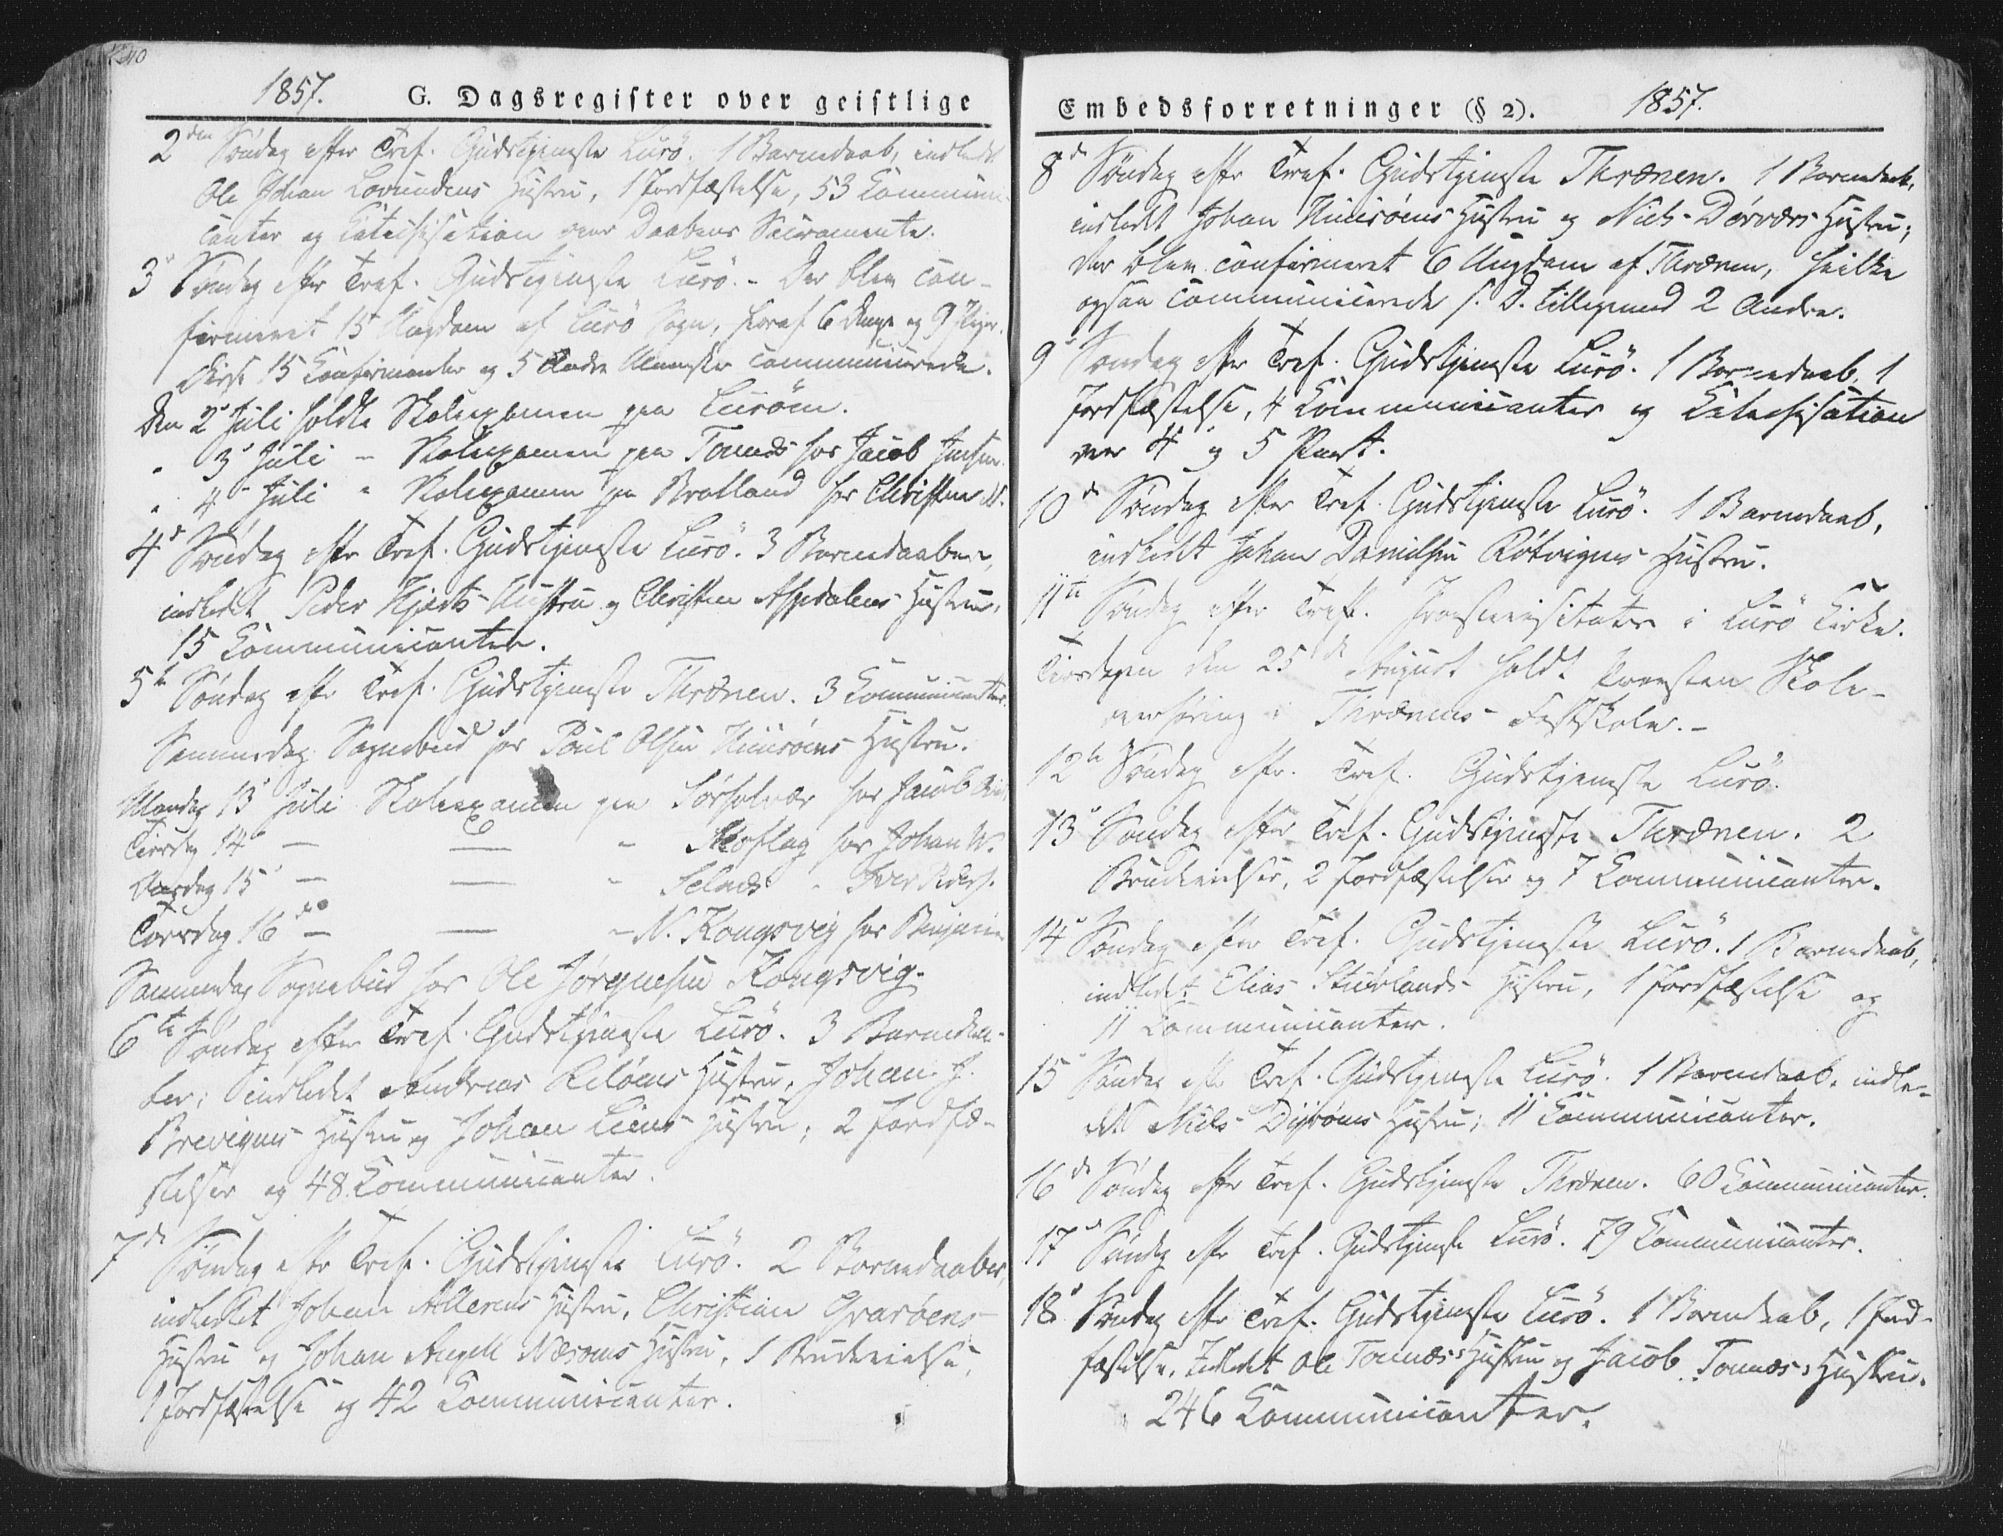 240
1857. G. Dagsregister over geistlige
2den Søndag efter Tref. Gudstjeneste Lurö. 1 Barnedaab, indledt
Ole Johan Lovundens Hustru, 1 Jordfæstelse, 53 Kommuni-
canter og Catechisation over Daabens Sacramente.
3d Søndag efter Tref. Gudstjeneste Lurö. - Der blev con-
firmeret 15 Ungdom af Lurö Sogn, hvoraf 6 Drenge og 9 Piger.
Disse 15 Confirmanter og 5 Andre Mennesker communicerede.
Den 2d Juli holdte Skoleexamen paa Lurøen.
" 3d Juli - Skoleexamen paa Tonnes hos Jacob Jensen.
" 4d Juli " Skoleexamen paa Bratland hos Christen N.
4d Søndag efter Tref. Gudstjeneste Lurö. 3 Barnedaaber,
indledt Peder Hjerts Hustru og Christen Aspdalens Hustru,
15 Communicanter.
5te Søndag efter Tref. Gudstjeneste Thrænen. 3 Communicanter.
Sammedag Sognebud hos Poul Olsen Husøens Hustru.
Mandag 13d Juli Skoleexamen paa Sørsolvær hos Jacob
Tirsdag 14d — — " Moflag hos Johan W.
Onsdag 15d — — " Selnæs " Iver Peders.
Torsdag 16de — — " N. Kongsvig hos Benjamin
Sammedag Sognebud hos Ole Jørgensen Kongsvig.
6te Søndag efter Tref. Gudstjeneste Lurö. 3 Barnedaa-
ber; indledet Andreas Hustru, Johan J.
Brevigens Hustru og Johan Liens Hustru; 2 Jordfæ-
stelser og 48 Kommunicanter.
7de Søndag efter Tref. Gudstjeneste Lurö. 2 Barnedaaber,
indledet Johan Hustru, Christian Qvarøens
Hustru og Johan Angell Næsøens Hustru, 1 Brudevielse,
1 Jordfæstelse og 42 Communicanter.
Embedsforretninger (§ 2). 1857.
8d Søndag efter Tref. Gudstjeneste Thrænen. 1 Barnedaab,
indledt Johan Husøens Hustru og Niels Dørværs Hustru;
der blev confirmeret 6 Ungdom af Thrænen, hvilke
ogsaa communicerede s. D. tilligemed 2 Andre.
9d Søndag efter Tref. Gudstjeneste Lurö. 1 Barnedaab, 1
Jordfæstelse, 4 Communicanter og Catechisation
over 4 og 5 Part.
10de Søndag efter Tref. Gudstjeneste Lurö. 1 Barnedaab,
indledt Johan Danielsen Røtvigens Hustru.
11te Søndag efter Tref. Provstevisitats i Lurö Kirke.
Tirsdagen den 25de August holdt Provsten Skole-
overhøring i Thrænens Fastskole. -
12te Søndag efter Tref. Gudstjeneste Lurö.
13d Søndag efter Tref. Gudstjeneste Thrænen. 2
Brudevielser, 2 Jordfæstelser og 7 Communicanter.
14d Søndag efter Tref. Gudstjeneste Lurö. 1 Barnedaab,
indledet Elias Stuvlands Hustru, 1 Jordfæstelse og
11 Communicanter.
15d Søndag efter Tref. Gudstjeneste Lurö. 1 Barnedaab, indle-
det Niels Hustru; 11 Communicanter.
16de Søndag efter Tref. Gudstjeneste Thrænen. 60 Communicanter.
17d Søndag efter Tref. Gudstjeneste Lurö. 79 Communicanter.
18d Søndag efter Tref. Gudstjeneste Lurö. 1 Barnedaab, 1 Jord-
fæstelse, Indledet Ole Tonnes's Hustru og Jacob Tonnes's Hustru.
246 Communicanter.